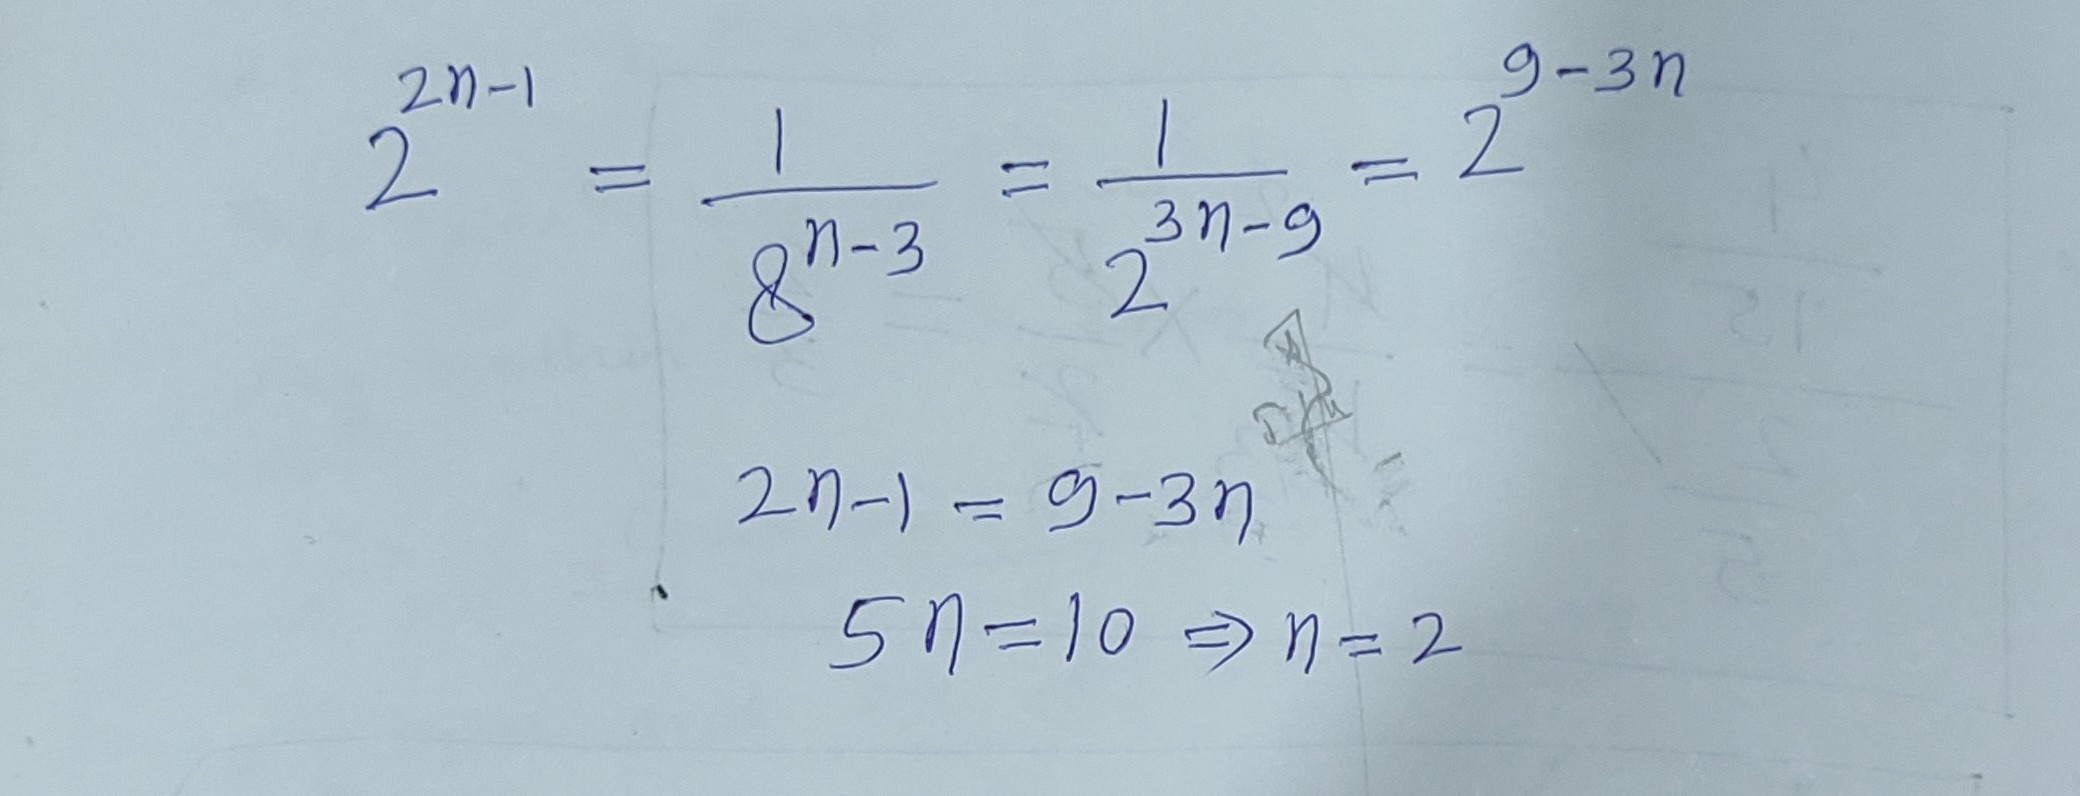 2^{2n-1} = \frac{1}{8^{n-3}} = \frac{1}{2^{3n-9}} = 2^{9-3n}
2n-1 = 9-3n
5n = 10 ⇒ n = 2